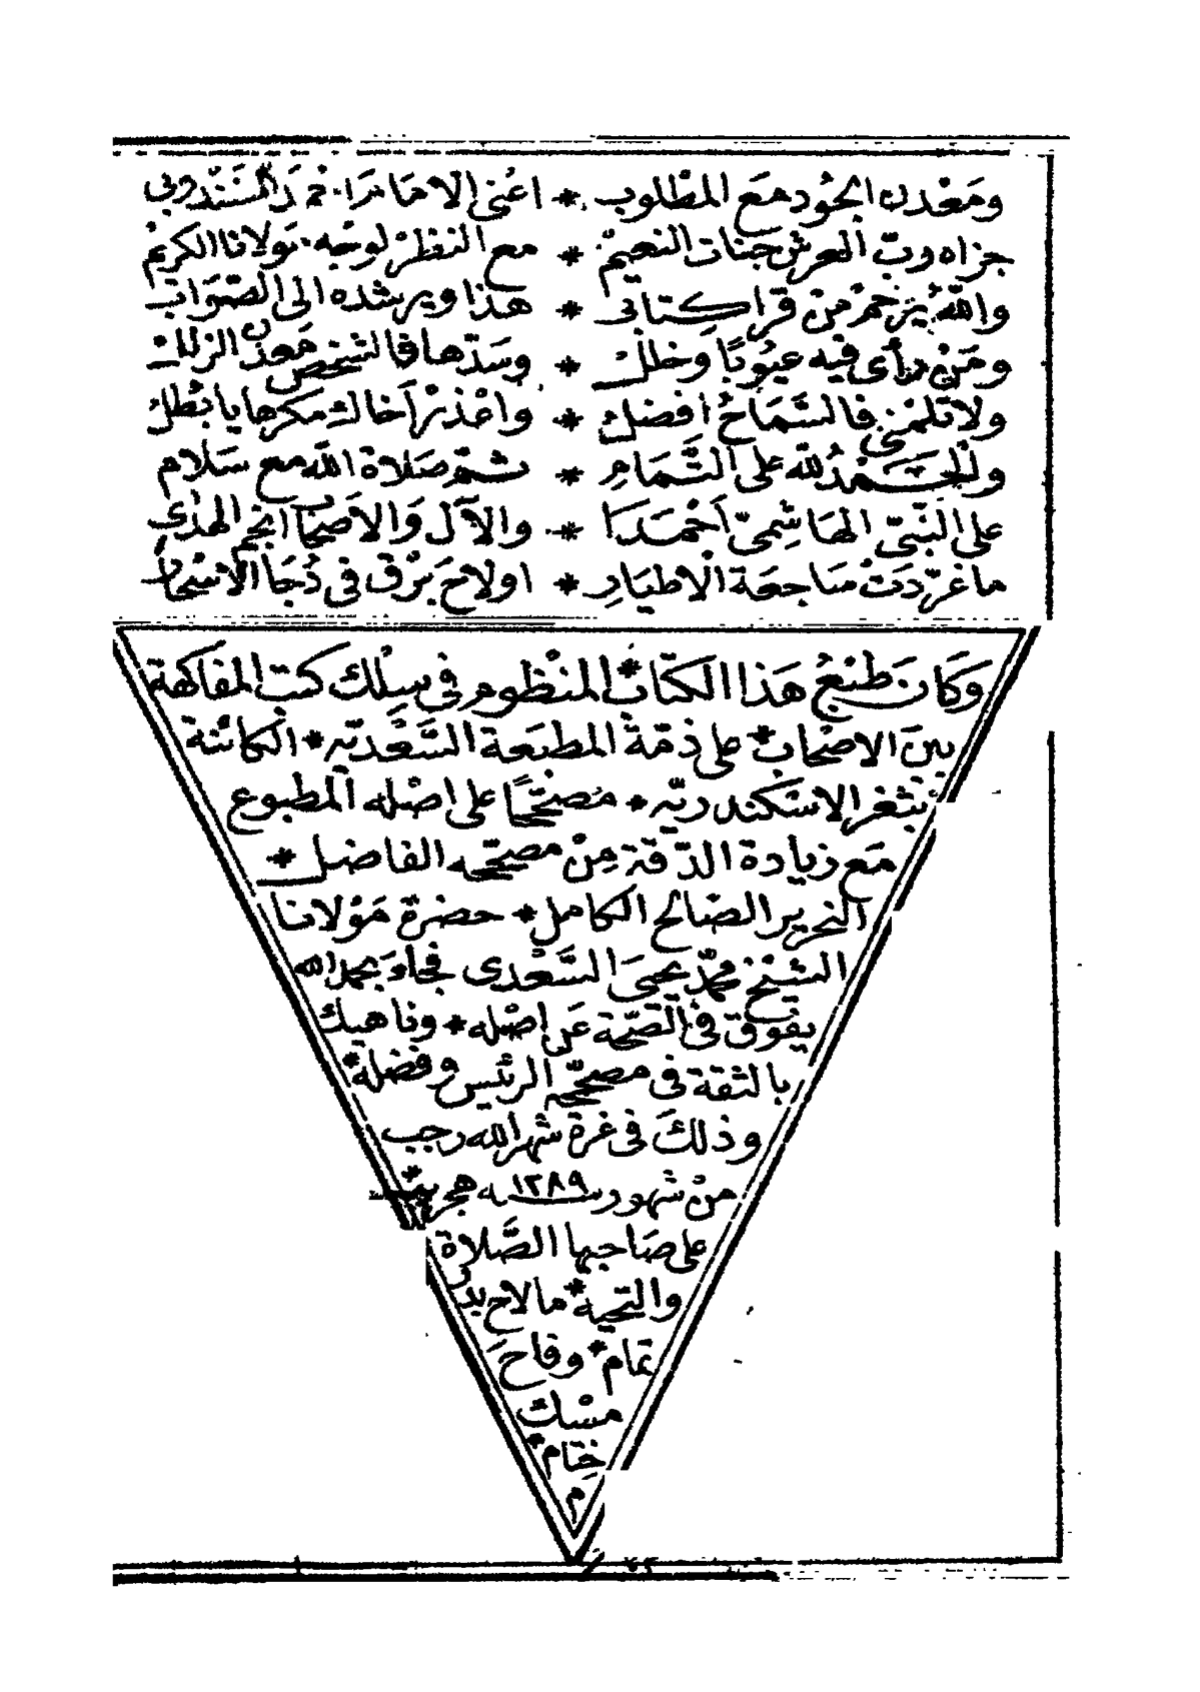 ومَعْدن الجُود مَع المَطْلوب * اعْنى الامَامَ احْمدَ السَّنْدوبى
جزاه ربّ العرش جنات النعيمْ * مع النظرْ لوجْه مَولانا الكريمْ
والله يرْحمُ مَنْ قرَا كتابى * هذا ويرشده الى الصّوَاب
ومَنْ رأى فيه عيُوبًا وخللْ * وسَدّها فالشخص مَعدن الزللْ
ولا تلمْنى فالسَّمَاحُ افضلْ * واعْذرْ اَخاك مكرها يا بطلْ
والحَمْدُ لله على التَّمَامِ * ثمّ صَلاة الله مع سَلام
على النَّبىّ الهَاشِمىّ اَحْمَدَا * والآل وَالاَصْحَاب انجُم الهدَى
ما غرّدَتْ سَاجعَة الْاطيَارِ * اولاحَ بَرْق فى دُجَا الاَسْحَار
وَكَانَ طَبْعُ هَذا الكتَاب * المنْظوم فى سِلْك كتب المفاكهة
بينَ الاصْحَاب * على ذمّة المطبَعَة السَّعْديّه * الكائنة
بثغر الاسْكندريّه * مُصَحّحًا على اصْله المطبوع
مَع زيادة الدّقة مِنْ مصحّحه الفاضل *
النحرير الصَالح الكامل * حضرة مَوْلانا
الشيْخ محمّد يحيَى السَّعْدى فجاءَ بحمد الله
يفوق فى الصّحّة عَلى اصْله * وناهيك
بالثقة فى مصحّحه الرئيس وفضله *
وذلكَ فى غرة شهر الله رجب
منْ شهور سنة ١٢٨٩ هجريّة *
على صَاحبها الصَّلاة
والتحية * مالاحَ بدر
تمام * وفاحَ
مسْك
ختام *
م